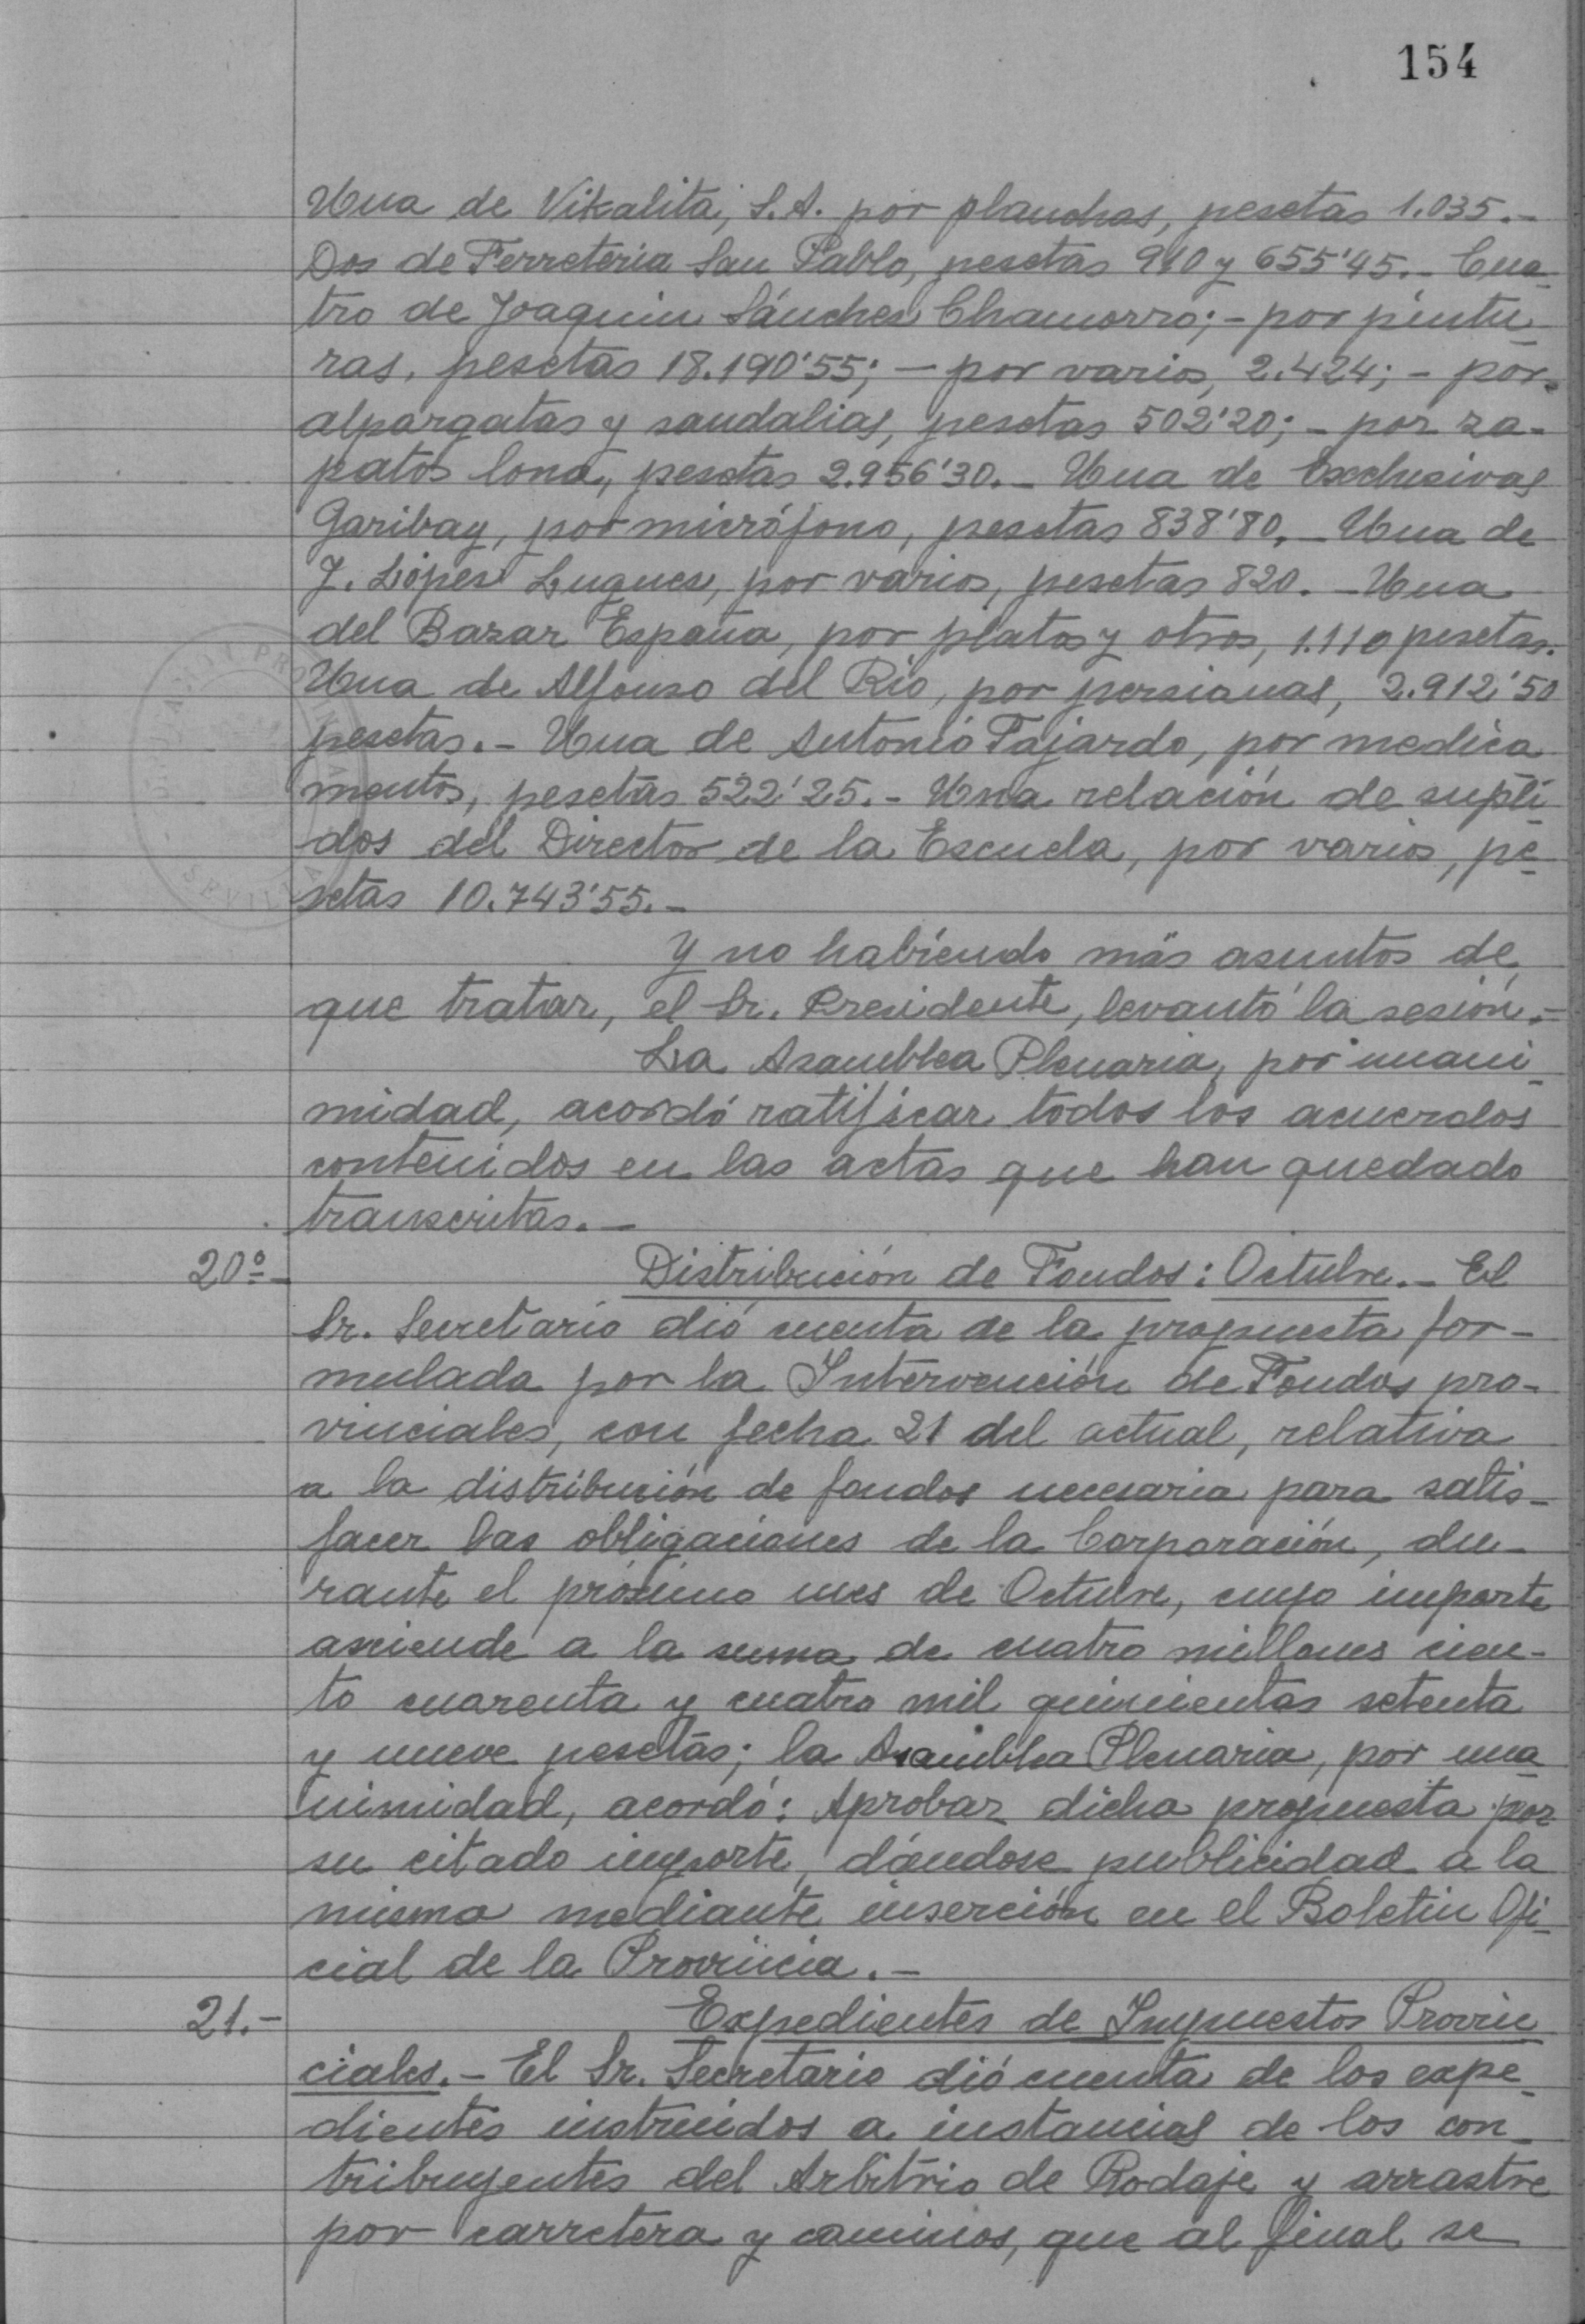 154
Una de Vikalita, S.A. por planchas, pesetas 1.035.-
Dos de Ferreteria San Pablo, pesetas 910 y 655'45.- Cua-
tro de Joaquin Sánchez Chamorro;- por pintu-
ras, pesetas 18.190'55; - por varios, 2.424; - por
alpargatas y sandalias, pesetas 502'20; - por za-
patos lona, pesetas 2.956'30.- Una de Exclusivas
Garibay, por micrófono, pesetas 838'80.- Una de
J. López Luque, por varios, pesetas 820. - Una
del Bazar España, por platos y otros, 1.110 pesetas.
Una de Alfonso del Rio, por persianas, 2.912'50
pesetas.- Una de Antonio Fajardo, por medica
mentos, pesetas 522'25.- Una relación de supli-
dos del Director de la Escuela, por varios, pe-
setas 10.743'55.-
Y no habiendo más asuntos de
que tratar, el Sr. Presidente, levantó la sesión.-
La Asamblea Plenaria, por unani-
midad, acordó ratificar todos los acuerdos
contenidos en las actas que han quedado
transcritas.-
20º- Distribución de Fondos: Octubre.- El
Sr. Secretario dió cuenta de la propuesta for-
mulada por la Intervención de Fondos pro-
vinciales, con fecha 21 del actual, relativa
a la distribución de fondos necesaria para satis-
facer las obligaciones de la Corporación, du-
rante el próximo mes de Octubre, cuyo importe
asciende a la suma de cuatro millones cien-
to cuarenta y cuatro mil quinientas setenta
y nueve pesetas; la Asamblea Plenaria, por una-
nimidad, acordó: Aprobar dicha propuesta por
su citado importe, dándose publicidad a la
misma mediante inserción en el Boletin Ofi-
cial de la Provincia.-
21.- Expedientes de Impuestos Provin
ciales.- El Sr. Secretario dió cuenta de los expe-
dientes instruidos a instancias de los con-
tribuyentes del Arbitrio de Rodaje y arrastre
por carretera y caminos, que al final se